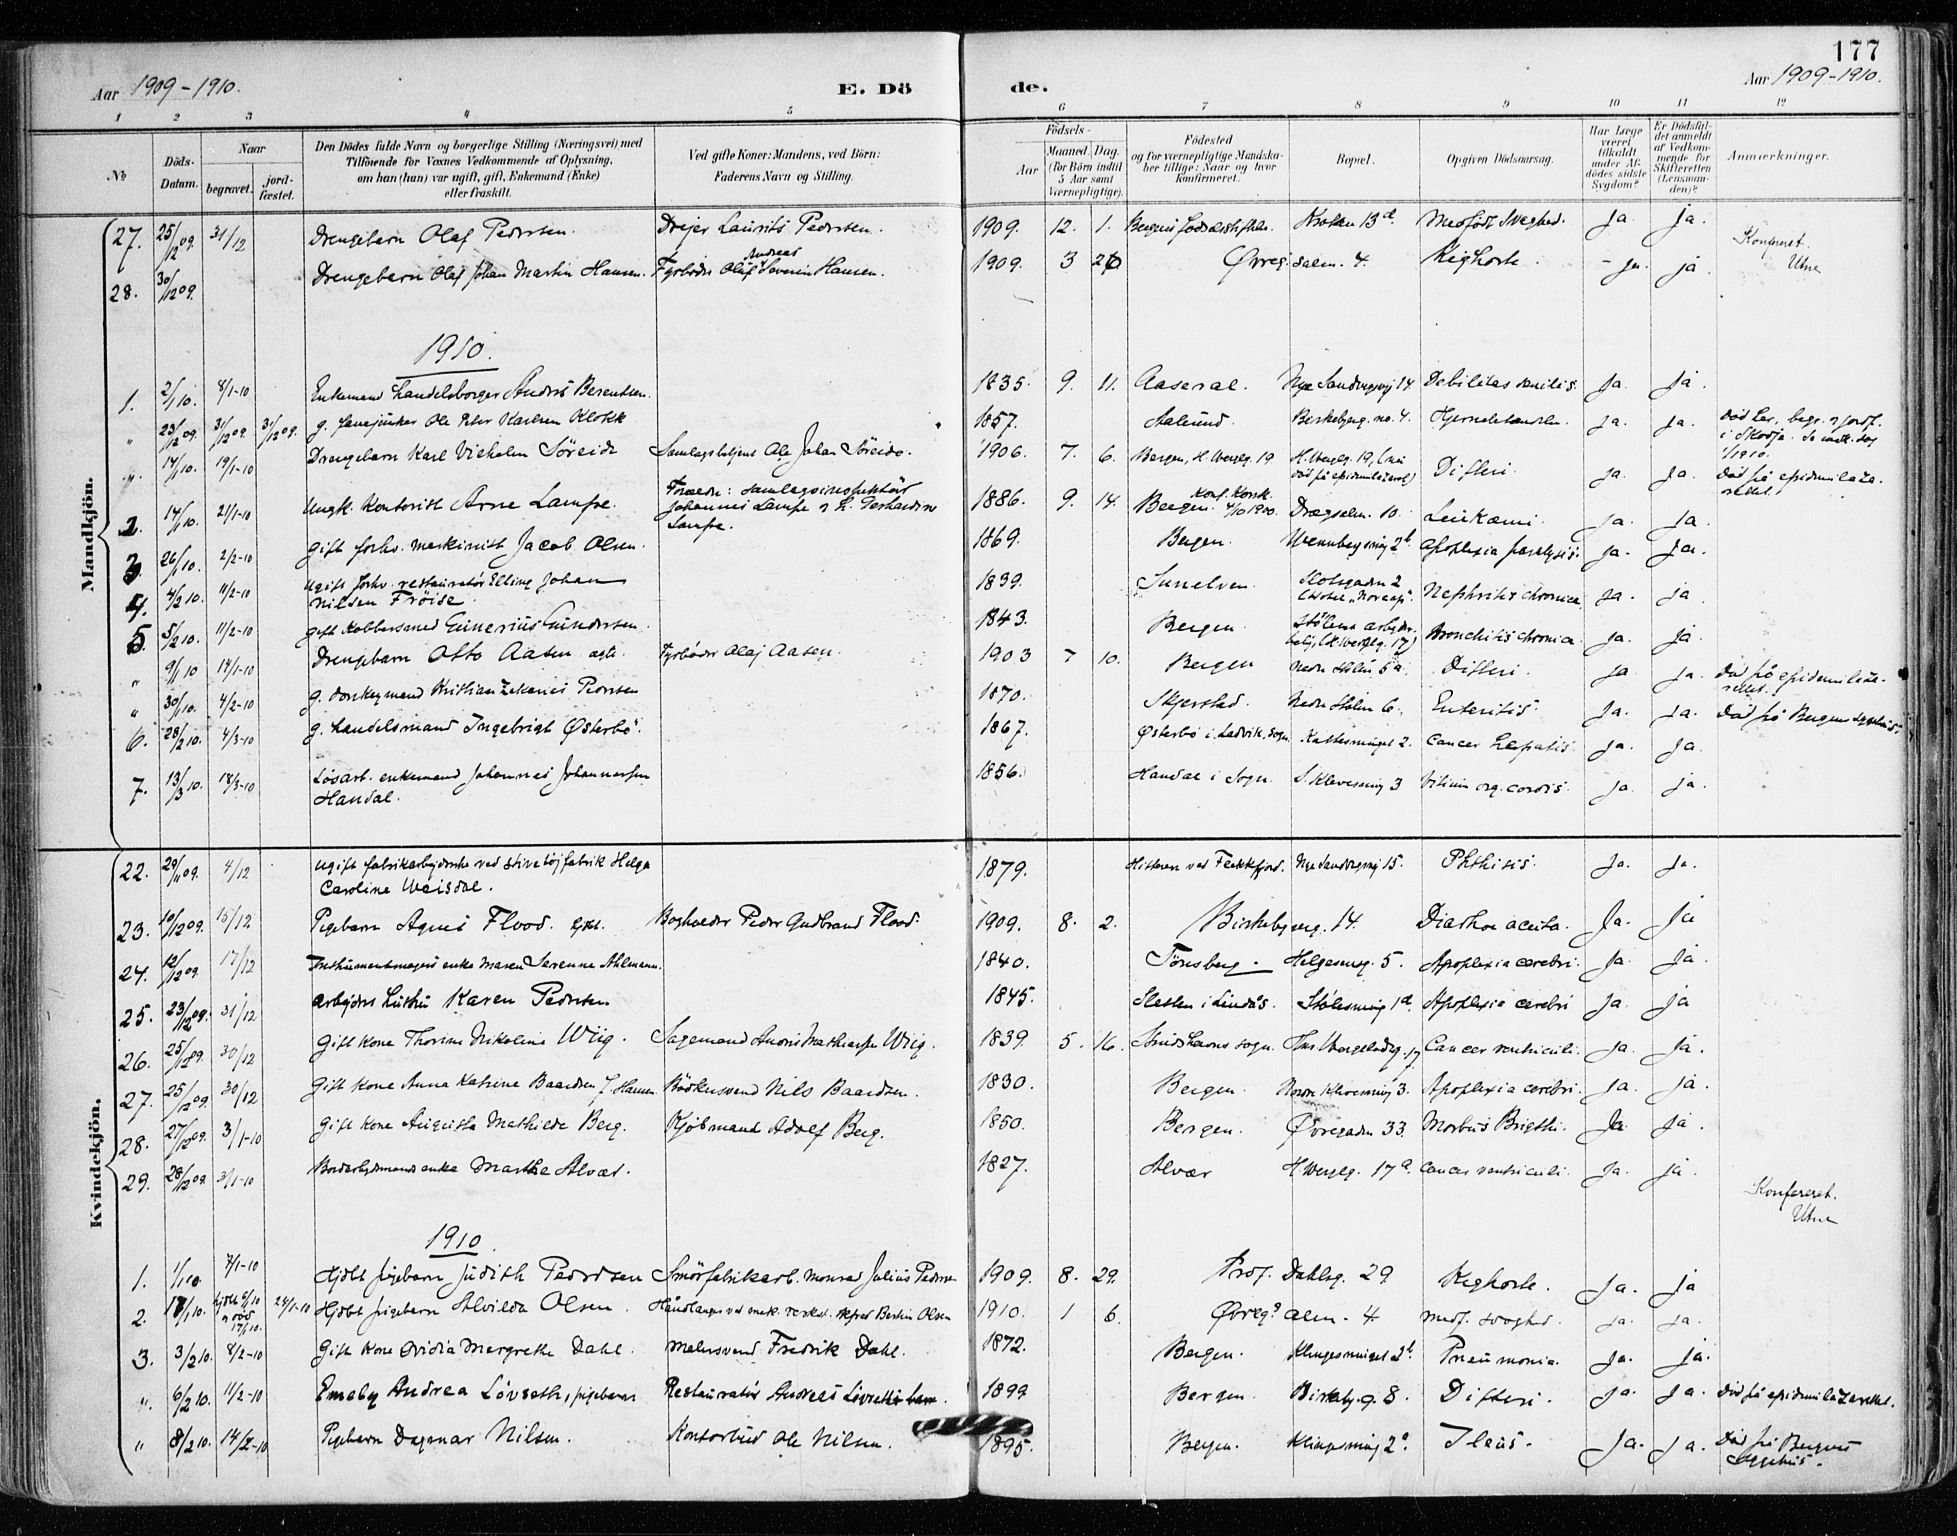 177
Aar 1909-1910.
E. Dö
de.
Aar 1909-1910.
1 2 3 4 5 6 7 8 9 10 11 12
No
Döds-Datum.
Naar
begravet.
jord-fæstet.
Den Dödes fulde Navn og borgerlige Stilling (Næringsvei) med
Tilföiende for Voxnes Vedkommende af Oplysning,
om han (hun) var ugift, gift, Enkemand (Enke)
eller fraskilt.
Ved gifte Koner: Mandens, ved Börn:
Faderens Navn og Stilling.
Födsels-
Aar
Maaned. Dag.
(for Börn indtil
5 Aar samt
Værnepligtige).
Födested
og for værnepligtige Mandska-
ber tillige: Naar og hvor
konfirmeret.
Bopæl.
Opgiven Dödsaarsag.
Har Læge
været
tilkaldt
under Af-
dödes sidste
Sygdom?
Er Dödsfal-
det anmeldt
af Vedkom-
mende for
Skifteretten
(Lensman-
den)?
Anmærkninger.
Mandkjön.
27. 25/12 09. 31/12 Drengebarn Olaf Pedersen. Drejer Laurits Pedersen. 1909. 12. 1. Bergens födselsstiftelse. Kroken 13 Medfödt Svaghed. ja. ja.
Konfereret.
Utne
28. 30/12 09. Drengebarn Olaf Johan Martin Hansen. Fyrböder Olaf Andreas Severin Hansen. 1909. 3 Øvreg. alm. 4. Kighoste. ja. ja
1910.
1. 2/1 10. 8/1-10 Enkemand handelsborger Andreas Berentsen. 1835. 9. 11. Aaseral. Nye Sandvigsvej 14. Debilitas senilis. ja. ja.
" 23/12 09. 31/12 09. 31/12 09. g. Ole Peter Karlsen Klokk 1857. Aalesund. Birkebejerg. no. 4. ja. ja. Död her, begr. og jordf.
i Skodje.
1/1910.
" 14/1 10. 19/1-10 Drengebarn Karl Vilhelm Söreide Samlagsbetjent Ole Johan Söreide. 1906. 7. 6. Bergen, H. Wergelg. 19 H. Wergelg. 19, Difteri. ja. ja. Död på epidemilaza-
rettet.
2. 14/1 10. 21/1-10 Ungk. Kontorist Arne Lampe. Forældre: samlagsinspektör
Johannes Lampe og H. Gerhardine
Lampe. 1886. 9. 14. Bergen. Konf. Korsk.
/10 1900. Drægsalm. 10. Leukæmi. ja. ja.
3. 26/1 10. 2/2-10 Gift forhv. maskinist Jacob Olsen. 1869. Bergen. Apoplexia paralysis. ja. ja.
4. 4/2 10. 11/2-10 Ugift forhv. restauratör Elling Johan
Nilsen Fröise. 1839. Sunelven. Slotsgaden 2
Hotel "Norege". Nephritis chronica ja. ja
5. 5/2 10. 11/2-10 Gift Kobbersmed Gunerius Gundersen. 1843. Bergen. Stölens arbejder-
(H. Wergelg. 17) Bronchitis chronica. ja. ja.
" 9/1 10 14/1-10 Drengebarn Otto Aasen Fyrböder Olaj Aasen. 1903 7 10. Bergen Nedre Stölen 5a. Difteri. ja ja. Död på epidemilaza-
rettet.
" 30/1 10. 4/2-10 g. donkeymand Kristian Zakarias Pedersen 1870. Skjerstad. Nedre Stölen 6. Enteritis. ja. ja. Död på Bergens sygehus.
6. 28/2 10. 4/3-10 g. handelsmand Ingebrigt Østerbö. 1867. Østerbö i Ladvik, Sogn. Kattesmuget 2. Cancer hepatis. ja. ja.
7. 13/3 10. 18/3-10 Lösarb. enkemand Johannes Johannessen
Handal. 1856. Handal i Sogn. S. Klevesmug 3 Vitium org. cordis. ja. ja.
Kvindekjön.
22. 29/11 09. 4/12 Ugift fabrikarbejderske ved Helga
Caroline Weisdal. 1879. Hitterö ved Flekkfjord. Nye Sandvigsvej 15. Phthisis. Ja. ja.
23. 10/12 09. 15/12 Pigebarn Agnes Flood. Bogholder Peder Gudbrand Flood. 1909. 8. 2. Birkebejerg. 14. Diarrhoe acuta. Ja. ja
24. 12/12 09. 17/12 Instrumentmagers enke Maren Severine Ahlmann. 1840. Tönsberg. Helgesensg. 5. Apoplexia cerebri. Ja. ja.
25. 23/12 09. 31/12 Arbejders hustru Karen Pedersen 1845. i Lindås. Apoplexia cerebri Ja. ja
26. 25/12 09. 30/12 Gift kone Thorine Nikoline Wiig. Sagemand Wiig. 1839. 5. 16. Cancer ventriculi. ja. ja.
27. 25/12 09. 30/12 Gift kone Anna Katrine Baardsen f. Hansen. Bödkersvend Nils Baardsen. 1830. Bergen. Nordre Klevesmug 3. Apoplexia cerebri. ja. ja.
28. 27/12 09. 3/1-10 Gift kone Augusta Mathilde Berg. Kjöbmand Adolf Berg. 1850. Bergen. Øvregaden 33. Morbus Brigthi. Ja. ja.
29. 28/12 09. 3/1-10 enke Marthe Alvær. 1827. Alvær H. Wergelg. 17a. Cancer ventriculi. Ja. ja
Konfereret.
Utne
1910.
1. 1/1 10. 7/1-10 Hjdbt pigebarn Judith Pedersen Smörfabrikarb. Monrad Julius Pedersen 1909. 8. 29. Prof. Dahlsg. 29. Kighoste. ja. ja
2. 24/1-10 Hjdbt pigebarn Alvilda Olsen. Håndlanger ved mek. verkst. Alfred Bertin Olsen 1910. 1 6. Øvreg. alm. 4 medf. svaghed. ja. ja.
3. 3/2 10. 8/2-10 Gift kone Ovidia Margrethe Dahl. Malersvend Fredrik Dahl. 1872. Bergen. Pneumonia. ja. ja.
" 6/2 10. 11/2-10 Emeby Andrea Lövseth, pigebarn Restauratör Andreas 1899 Bergen. Birkebj.g. 8. Difteri. ja. ja. Död på epidemilazarettet.
" 8/2 10. 14/2-10 Pigebarn Dagmar Nilsen. Kontorbud Ole Nilsen. 1895. Bergen. Ileus. Ja. ja. Död på Bergens
sygehus.